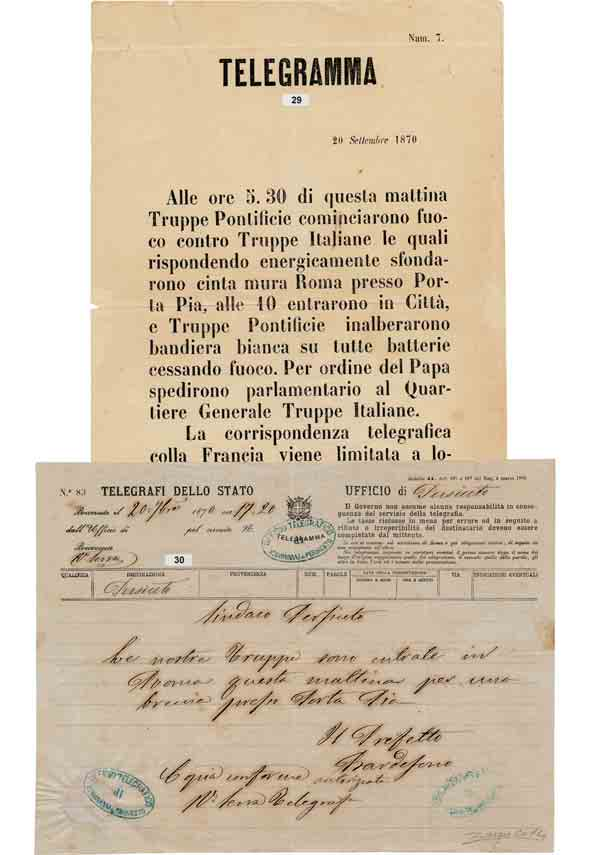 Num. 7.
TELEGRAMMA
29
20 Settembre 1870
Alle ore 5.30 di questa mattina
Truppe Pontificie cominciarono fuo-
co contro Truppe Italiane le quali
rispondendo energicamente sfonda-
rono cinta mura Roma presso Por-
ta Pia, alle 10 entrarono in Città,
e Truppe Pontificie inalberarono
bandiera bianca su tutte batterie
cessando fuoco. Per ordine del Papa
spedirono parlamentario al Quar-
tiere Generale Truppe Italiane.
La corrispondenza telegrafica
colla Francia viene limitata a lo-
N.° 83
TELEGRAFI DELLO STATO
UFFICIO di Persiceto
Ricevuto il 20 7bre 1870 ore 17.20
dall'Ufficio di pel circuito N.
Ricevente
30
TELEGRAMMA
Il Governo non assume alcuna responsabilità in conse-
guenza del servizio della telegrafia.
Le tasse riscosse in meno per errore od in seguito a
rifiuto o irreperibilità del destinatario devono essere
completate dal mittente.
QUALIFICA DESTINAZIONE PROVENIENZA NUM. PAROLE DATA DELLA PRESENTAZIONE VIA INDICAZIONI EVENTUALI
Persiceto
Sindaco Persiceto
Le nostre Truppe sono entrate in
Roma questa mattina per una
breccia presso Porta Pia
Il Prefetto
Bardesono
Copia conforme autorizzata